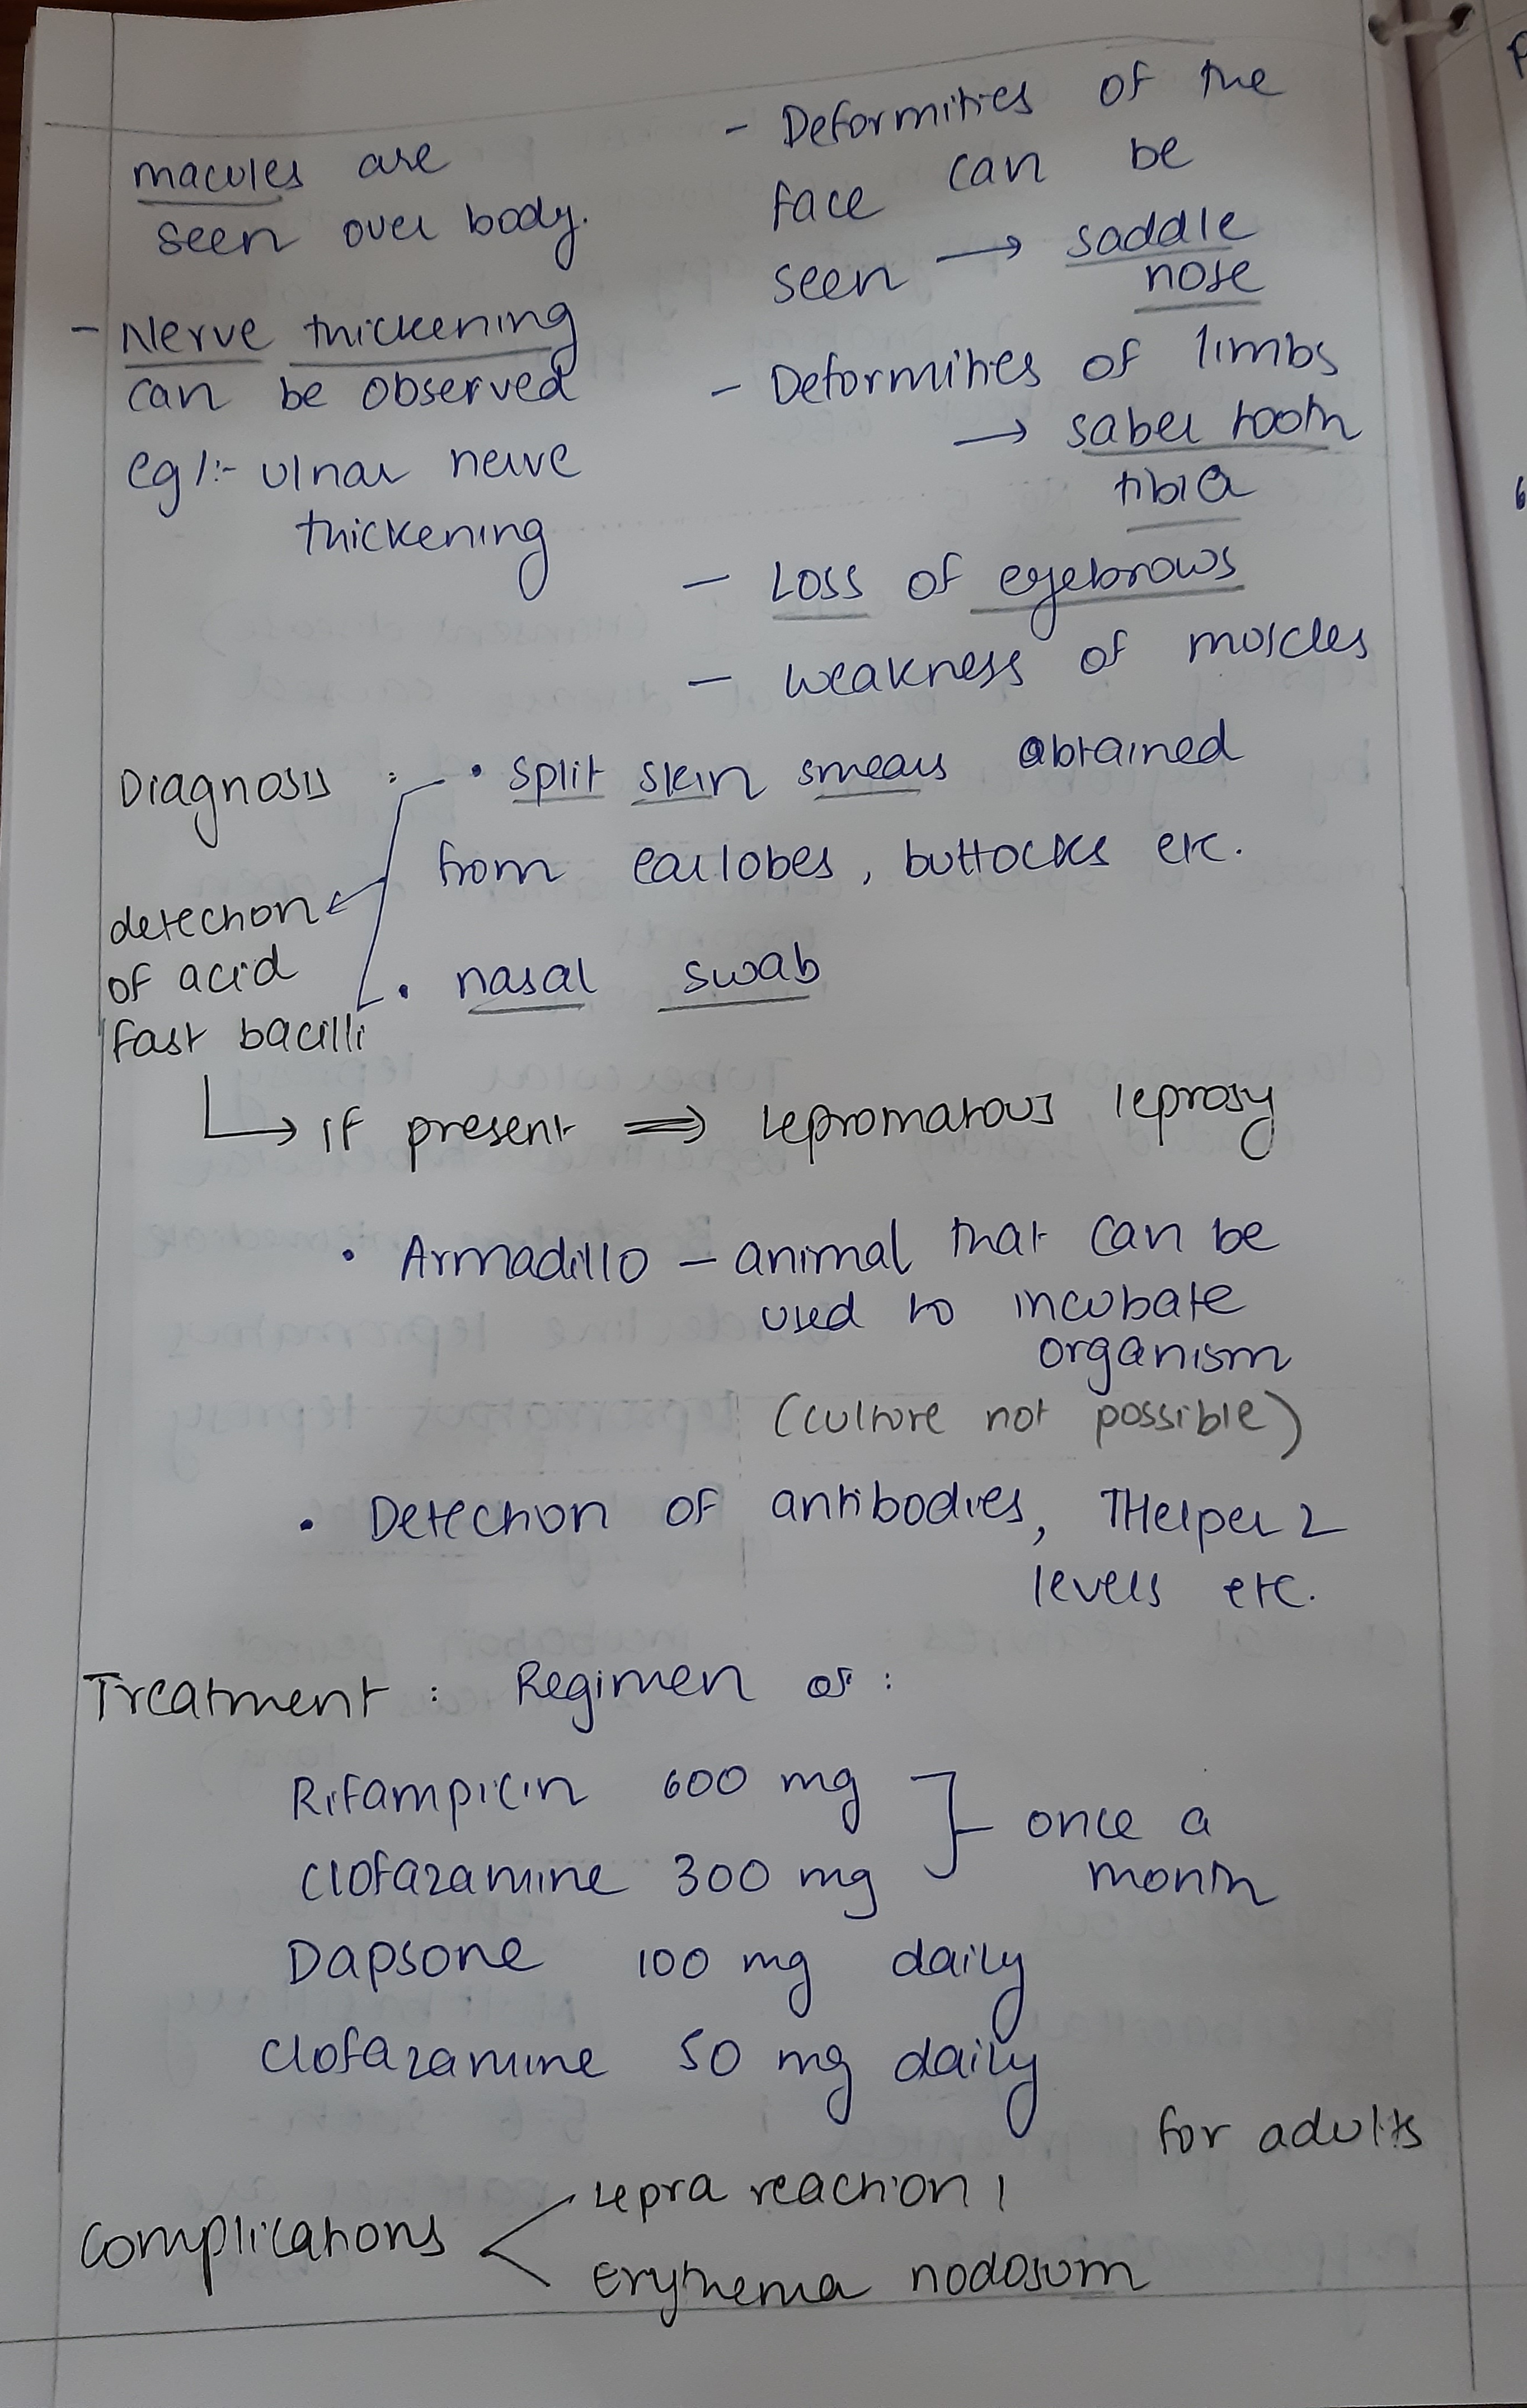 macules are
seen over body.
- Nerve thickening
can be observed
eg1:- ulnar nerve
thickening
- Deformities of the
face can be
seen → saddle
nose
- Deformities of limbs
→ saber tooth
tibia
- Loss of eyebrows
- weakness of muscles
Diagnosis : • split skin smears obtained
from earlobes, buttocks etc.
detection
of acid
fast bacilli
• nasal swab
↳ if present ⇒ Lepromatous leprosy
• Armadillo - animal that can be
used to incubate
organism
(culture not possible)
• Detection of antibodies, THelper 2
levels etc.
Treatment : Regimen of :
Rifampicin 600 mg
clofazamine 300 mg
once a
month
Dapsone 100 mg daily
clofazamine 50 mg daily
for adults
complications
Lepra reaction 1
Erythema nodosum